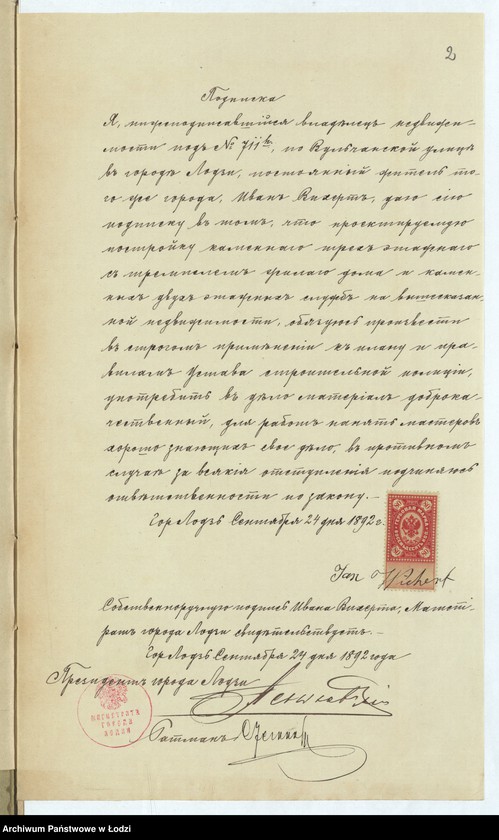 2
Подписка
Я, нижеподписавшійся владѣлецъ недвижи-
мости подъ № 711, по Вульчанской улицѣ
въ городѣ Лодзи, постоянный житель то-
го же города, Иванъ Вихертъ, даю сію
подписку въ томъ, что проектируемую
постройку каменнаго трехъ этажнаго
съ тремпелемъ жилаго дома и камен-
ныхъ двухъ этажныхъ службъ на вышесказан-
ной недвижимости, обязуюсь произвести
въ строгомъ примѣненіи къ плану и пра-
виламъ Устава строительной полиціи,
употребить въ дѣло матеріалъ доброка-
чественный, для работъ нанять мастеровъ
хорошо знающихъ свое дѣло, въ противномъ
случаѣ за всякія отступленія подчиняюсь
отвѣтственности по закону.
Гор Лодзь Сентября 24 дня 1892 г.
Jan Wichert
Собственноручную подпись Ивана Вихерта, Магист-
ратъ города Лодзи свидѣтельствуетъ.
Гор Лодзь Сентября 24 дня 1892 года
Президентъ города Лодзи
МАГИСТРАТЪ
ГОРОДА
ЛОДЗИ
Ратманъ
Archiwum Państwowe w Łodzi